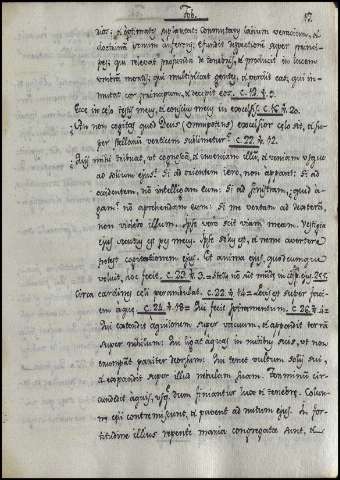 Job.
17
dos; et optimates supplantat: commutans labium veracium, et
doctrinam senum auferens; effundit despectionem super princi-
pes; qui revelat profunda de tenebris, et producit in lucem
umbram mortis; qui multiplicat gentes, et perdit eas; qui im-
mutat cor principum, et decipit eos. C. 12. ℣.
Ecce in celo testis meus, et conscius meus in excelsis. C. 16 ℣. 20.
An non cogitas quod Deus (omnipotens) excelsior celo sit, et su-
per stellarum verticem sublimetur? C. 22. ℣. 12.
Quis mihi tribuat, ut cognoscā, et inveniam illū, et veniam usque
ad solium ejus? Si ad orientem iero, non apparet: Si ad
occidentem, nō intelligam eum: Si ad sinistram, quid a-
gam? nō aprehendam eum: Si me vertam ad dexterā,
non videbo illum. Ipse vero scit viam meam. Vestigia
ejus secutus est pes meus. Ipse solus est, et nemo avertere
potest cogitationem ejus. Et anima ejus, quodcumque
voluit, hoc fecit. C. 23. ℣. 3.
Circa cardines celi perambulat. C. 22. ℣. 14 = super faci-
em aque. C. 24. ℣. 18 = C. 26. ℣.
Qui extendit aquilonem super vacuum, et appendit terrā
super nihilum: Qui ligat aquas in nubibus suis, ut non
erumpāt pariter deorsum: Qui tenet vultum solij sui,
et expandit super illud nebulam suam. Terminum cir-
cumdedit aquis, usq. dum finiantur lux et tenebre. Colum-
ne celi contremiscunt, et pavent ad nutum ejus. In for-
titudine illius repente maria congregata sunt, et